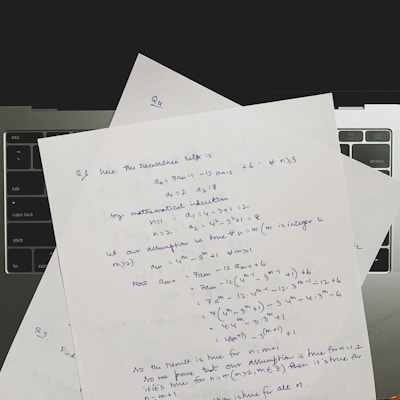 Q4.
Q.3 Here the recurrence reln is
an = 7an-1 - 12 an-2 + 6 · ∀ n≥3
a1 = 2 a2 = 8
by mathematical induction
n=1 a1 = 4-3+1 = 2
n=2 a2 = 4²-3²+1 = 8
let our assumption be true ∀ n=m (m is integer &
m>2) am = 4^m - 3^m + 1 ∀ m≥1
Now am+1 = 7am - 12 am-1 + 6
= 7am - 12(4^m-1 - 3^m-1 + 1) + 6
= 7a^m - 12·4^m-1 - 12·3^m-1 - 12 + 6
= 7(4^m - 3^m + 1) - 3·4^m - 4·3^m - 6
= 4·4^m - 3·3^m + 1
= 4(m+1) - 3(m+1) + 1
So the result is true for n=m+1
So we prove that our assumption is true for n=1,2
if it's true for n=m (m>2, m∈Z) then it's true for
n=m+1.
is true for all n.
Q5
Find
esc
tab
caps lock
shift
fn
delete